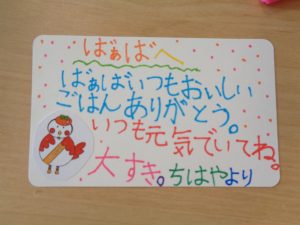 ばぁばへ
ばぁばいつもおいしい
ごはんありがとう。
いつも元気でいてね。
大すき。ちはやより